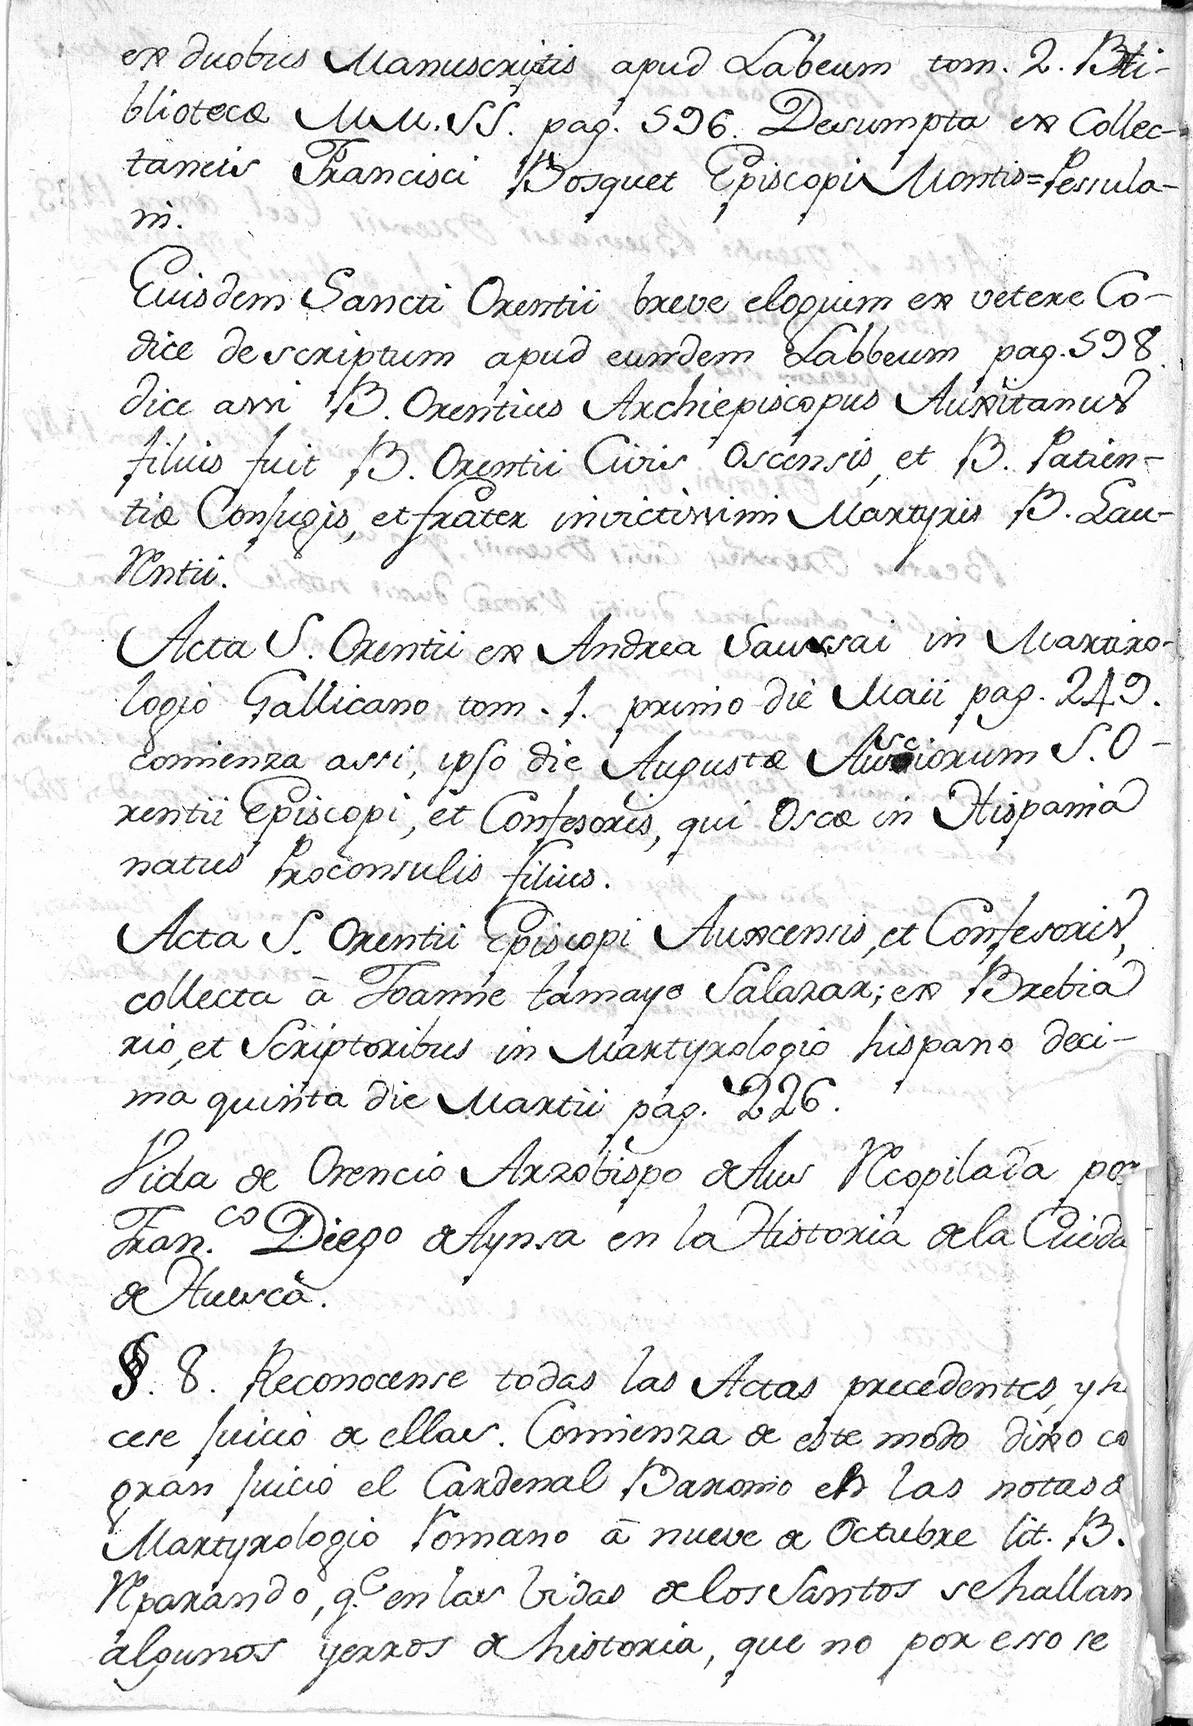 ex duobus Manuscriptis apud Labeum tom. 2. Bti-
bliotecæ MM.SS. pag. 596. Desumpta ex Collec-
taneis Francisci Bosquet Episcopi Montis=Pessula-
ni.
Euisdem Sancti Orentii breve eloguim ex vetere Co-
dice descriptum apud eumdem Labbeum pag. 598.
dice assi B. Orentius Archiepiscopus Auxitanus
filius fuit B. Orentii Civis Oscensis, et B. Patien-
tiæ Conjugis, et frater invictissimi Martyris B. Lau-
Rentii.
Acta S. Orentii ex Andrea Saussai in Martiro-
logio Gallicano tom. 1. primo die Maii pag. 249.
comienza assi, ipso die Augustæ Ausciorum S. O-
rentii Episcopi, et Confesoris, qui Oscæ in Hispania
natus Proconsulis filius.
Acta S. Orentii Episcopi Auxcensis, et Confesoris,
collecta à Joanne tamayo Salazar; ex Brebia
rio, et Scriptoribus in Martyrologio hispano deci-
ma quinta die Martii pag. 226.
Vida de Orencio Arzobispo de Aus Recopilada por
Fran.co Diego de Aynsa en la Historia de la Ciuda
de Huesca.
§. 8. Reconocense todas las Actas precedentes, y h
cese juicio de ellas. Comienza de este modo dixo co
gran juicio el Cardenal Baronio en las notas a
Martyrologio Romano à nueve de Octubre lit. B.
Reparando, q.e en las vidas de los Santos se hallan
algunos yerros de historia, que no por esso se